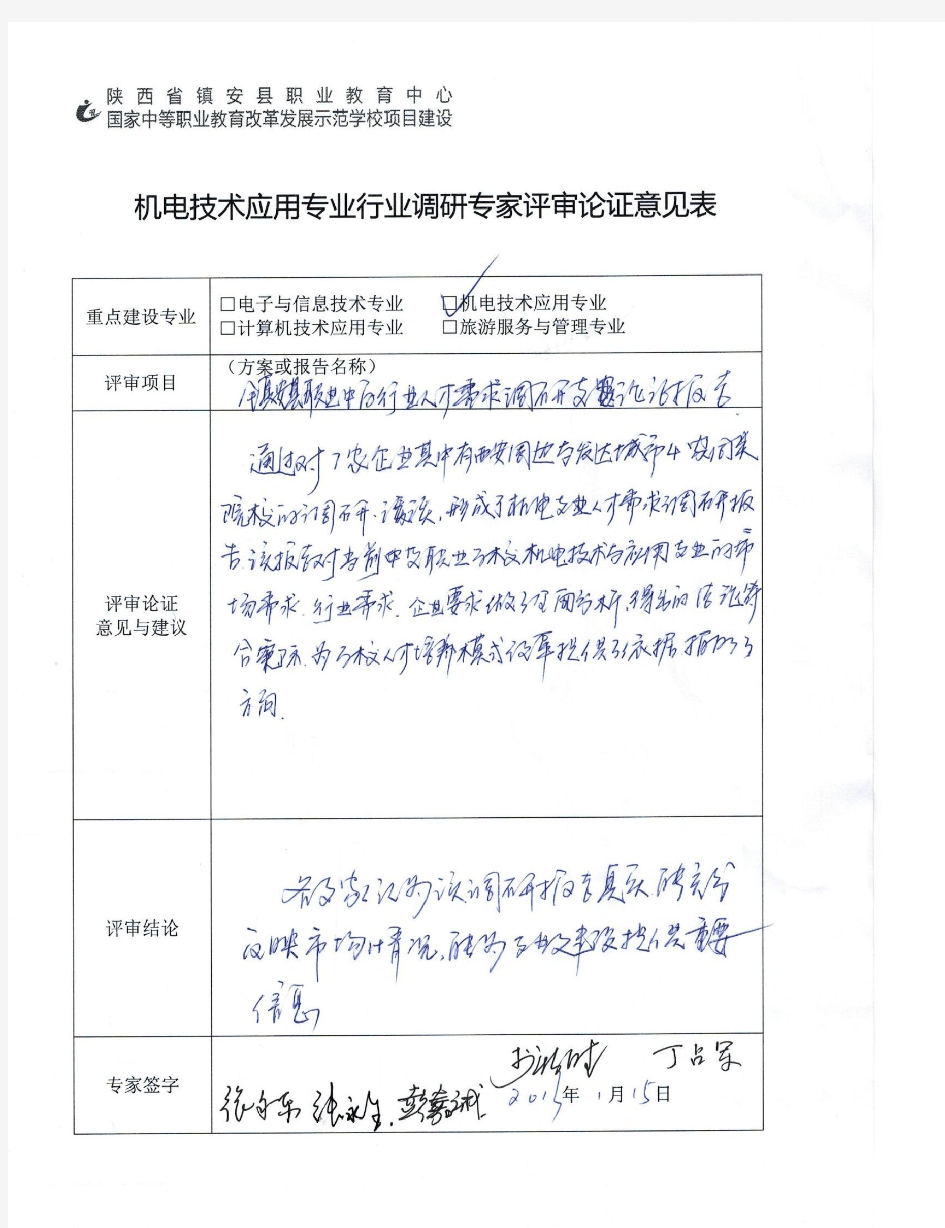 陕西省镇安县职业教育中心
国家中等职业教育改革发展示范学校项目建设
机电技术应用专业行业调研专家评审论证意见表
重点建设专业
□电子与信息技术专业 □机电技术应用专业
□计算机技术应用专业 □旅游服务与管理专业
评审项目
(方案或报告名称)
行业人才需求调研论证报告
评审论证
意见与建议
通过对7家企业其中有西安周边与发达城市4家同类
院校的调研、谈,形成了机电专业人才需求调研报
告,该报告对当前中及职业学校机电技术与应用专业的市
场需求、行业需求、企业要求做了全面分析,得出的结论符
合实际,为学校人才培养模式改革提供了依据指明了
方向.
评审结论
各专家认为该调研报告真实,能充分
反映市场情况,能为专业建设提供重要
信息
专家签字
丁占军
张永生
2015年1月15日